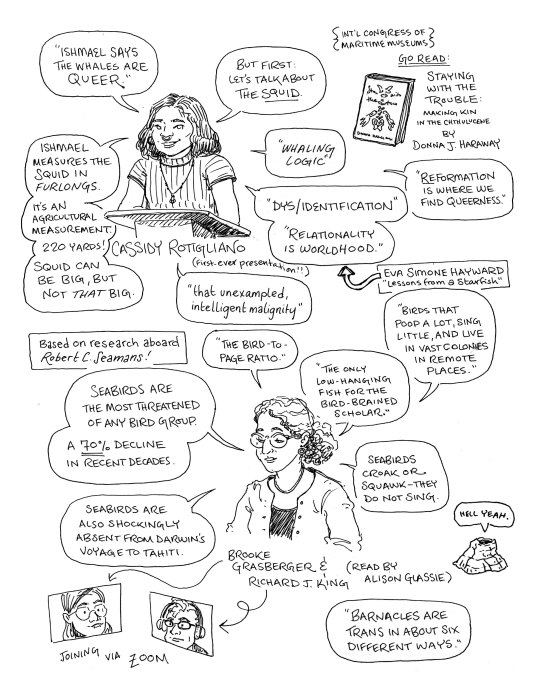 "ISHMAEL SAYS
THE WHALES ARE
QUEER."
BUT FIRST:
LET'S TALK ABOUT
THE SQUID.
{INT'L CONGRESS OF
MARITIME MUSEUMS}
GO READ:
STAYING
WITH THE
TROUBLE:
MAKING KIN
IN THE CHTHULUCENE
BY
DONNA J. HARAWAY
ISHMAEL
MEASURES THE
SQUID IN
FURLONGS.
IT'S AN
AGRICULTURAL
MEASUREMENT.
220 YARDS!
SQUID CAN
BE BIG, BUT
NOT THAT BIG.
"WHALING
LOGIC"
"DYS/IDENTIFICATION"
"REFORMATION
IS WHERE WE
FIND QUEERNESS."
"RELATIONALITY
IS WORLDHOOD."
CASSIDY ROTIGLIANO
(first-ever presentation!!)
EVA SIMONE HAYWARD
"Lessons from a Starfish"
"that unexampled,
intelligent malignity"
Based on research aboard
Robert C. Seamans!
"THE BIRD-TO-
PAGE RATIO."
"BIRDS THAT
POOP A LOT, SING
LITTLE, AND LIVE
IN VAST COLONIES
IN REMOTE
PLACES."
"THE ONLY
LOW-HANGING
FISH FOR THE
BIRD-BRAINED
SCHOLAR."
SEABIRDS ARE
THE MOST THREATENED
OF ANY BIRD GROUP.
A 70% DECLINE
IN RECENT DECADES.
SEABIRDS
CROAK OR
SQUAWK-THEY
DO NOT SING.
SEABIRDS ARE
ALSO SHOCKINGLY
ABSENT FROM DARWIN'S
VOYAGE TO TAHITI.
HELL YEAH.
BROOKE
GRASBERGER &
RICHARD J. KING
(READ BY
ALISON GLASSIE)
JOINING VIA ZOOM
"BARNACLES ARE
TRANS IN ABOUT SIX
DIFFERENT WAYS."